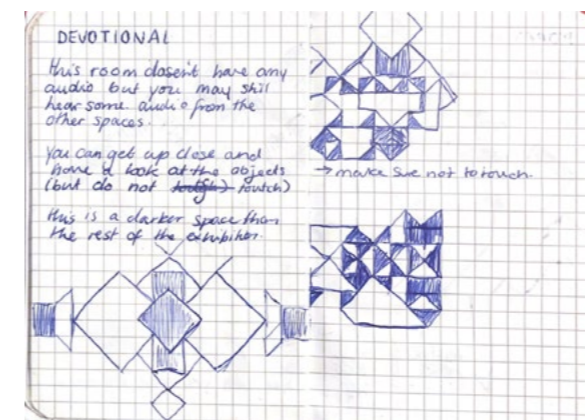 DEVOTIONAL
this room dosen't have any
audio but you may still
hear some audio from the
other spaces.
You can get up close and
have a look at the objects
(but do not toutch)
this is a darker space than
the rest of the exhibition.
→ make sure not to touch.